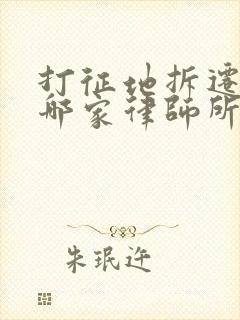 打征地拆迁
哪家律師所
朱珉迕